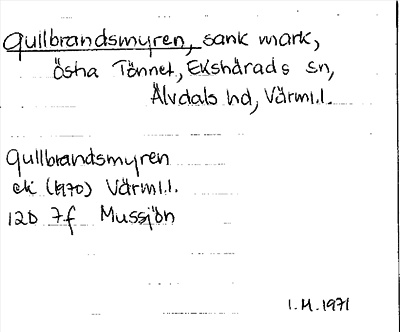 Gullbrandsmyren, sank mark,
Östra Tönnet, Ekshärads sn,
Älvdals hd, Värml.l.
Gullbrandsmyren
ek (1970) Värml.l.
12D 7f Mussjön
1.M.1971